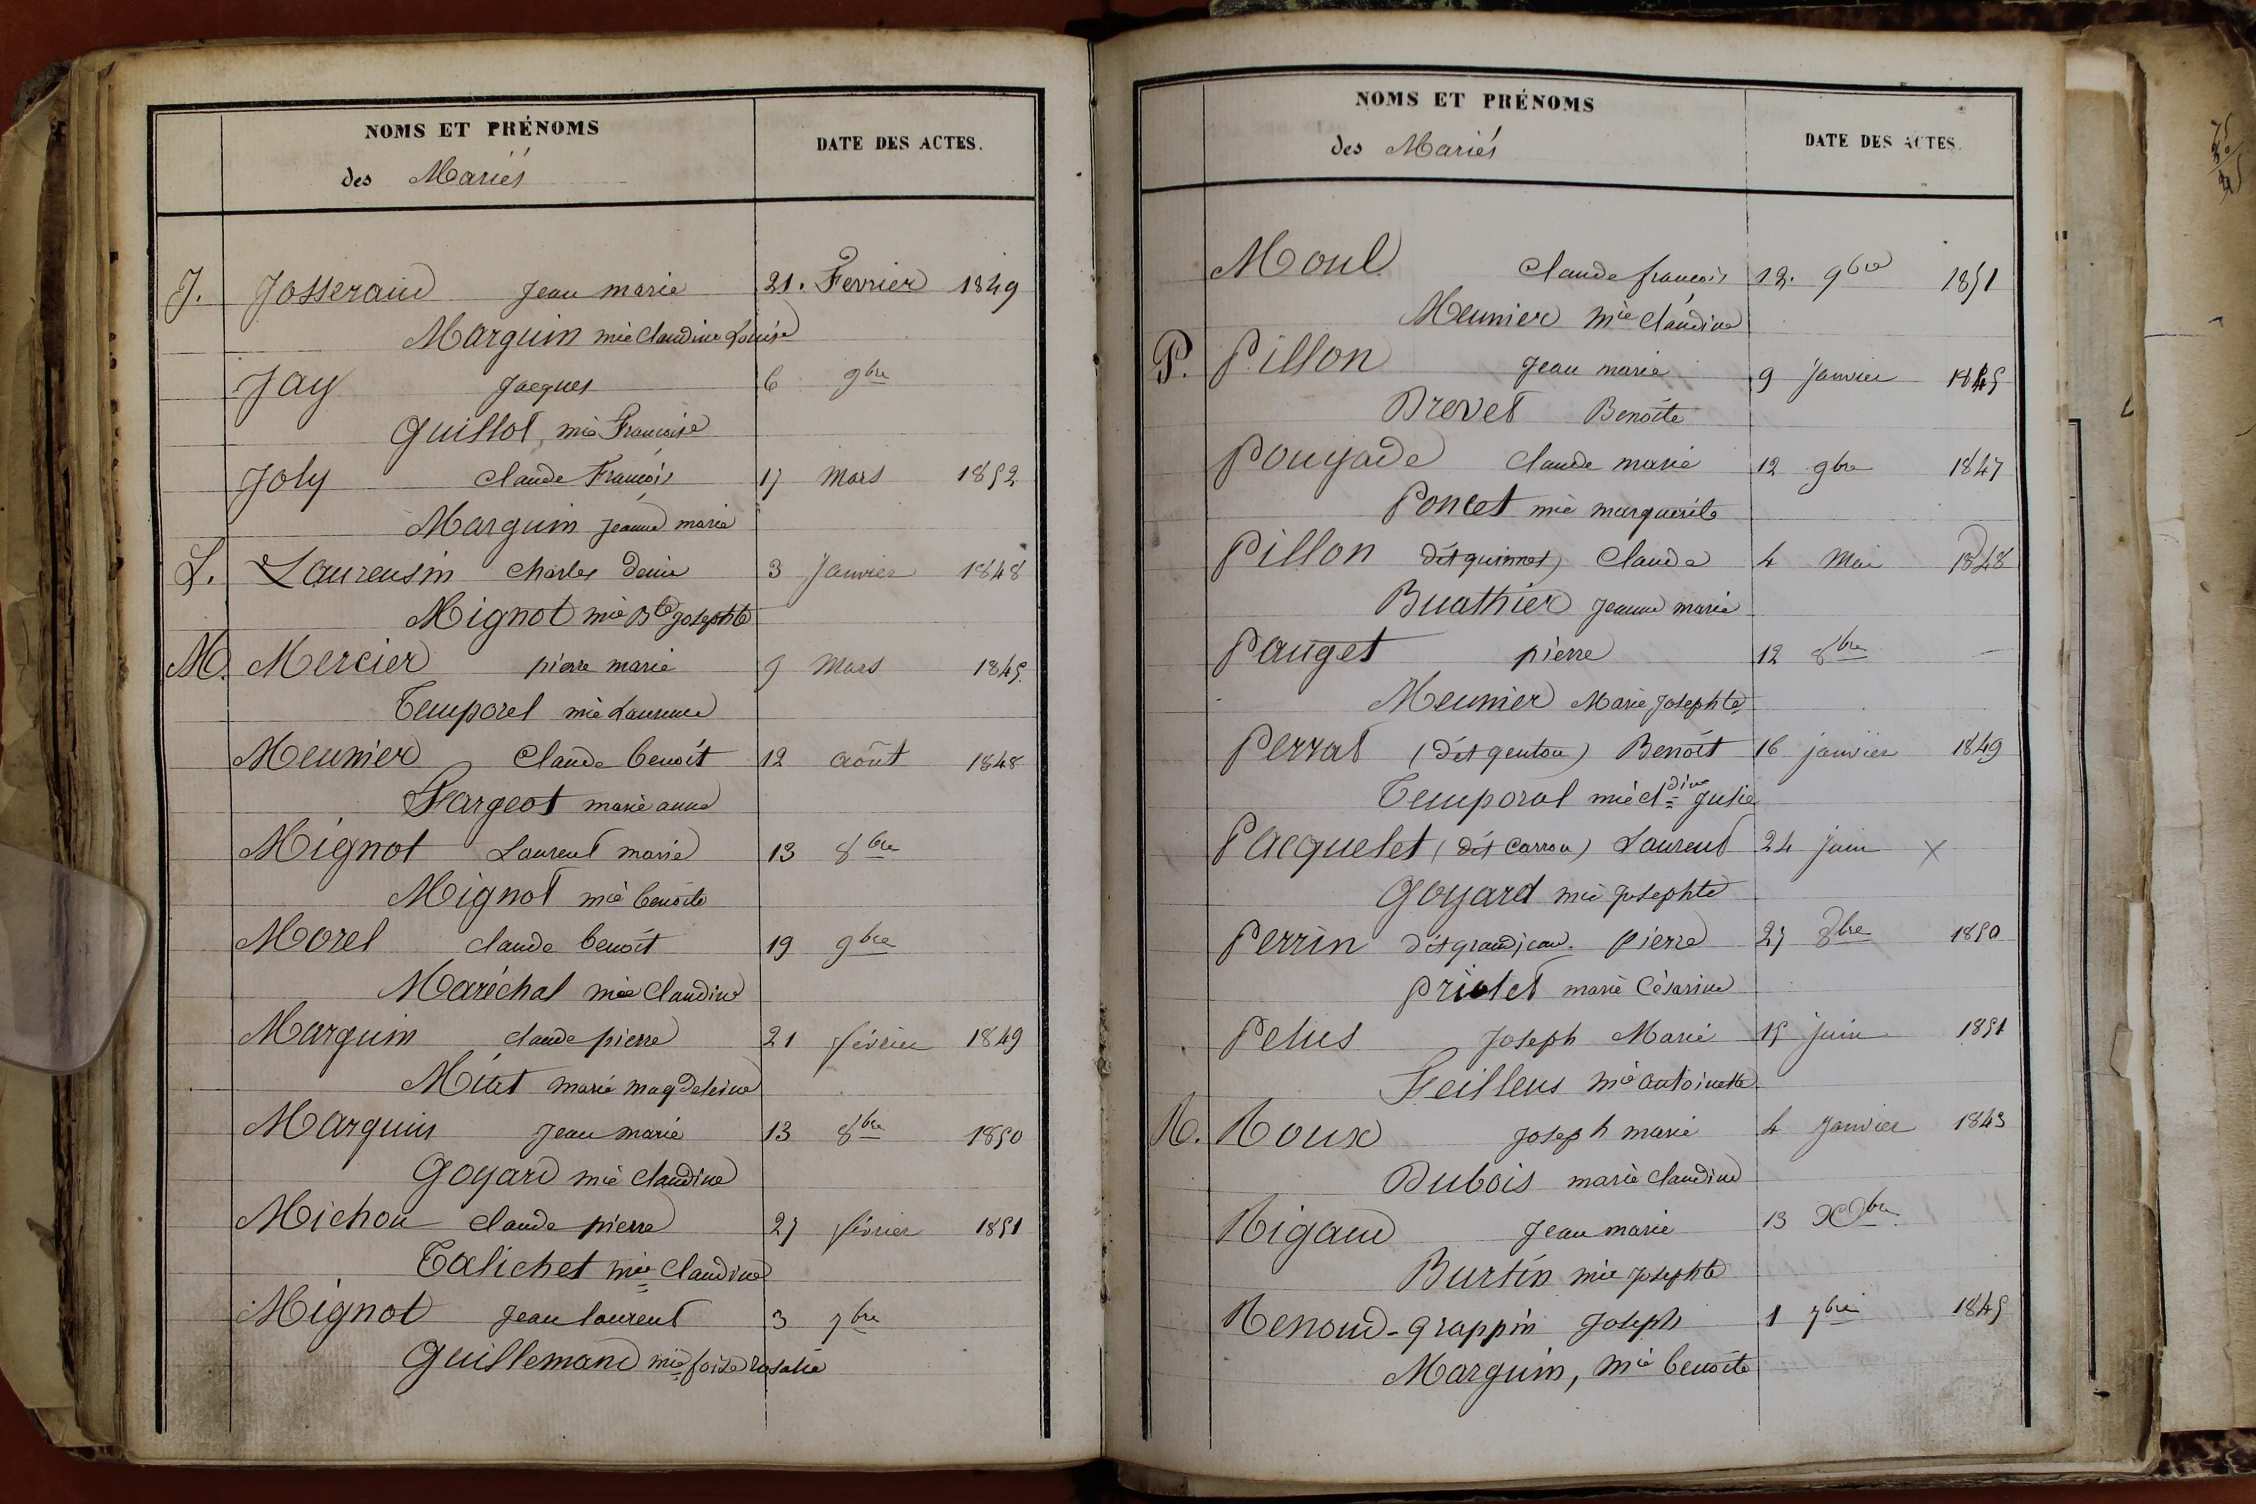 NOMS ET PRÉNOMS
des Mariés
DATE DES ACTES.
J. Josserand Jean marie 21. Fevrier 1849
Marguin mie Claudine Louise
Jay Jacques 6 9bre
Guillot, mie Francoise
Joly Claude François 17 Mars 1852
Marguin Jeanne marie
L. Laurensin Charles Denis 3 Janvier 1848
Mignot mie Bte Josephte
M. Mercier pierre marie 9 Mars 1845.
Temporel mie Laurence
Meunier Claude benoît 12 août 1848
Fargeot marie anne
Mignot Laurent marie 13 8bre
Mignot mie benoîte
Morel Claude benoît 19 9bre
Maréchal mie Claudine
Marguin Claude pierre 21 février 1849
Miat marie magdeleine
Marguin Jean marie 13 8bre 1850
Goyard mie Claudine
Michon Claude pierre 27 février 1851
Talichet mie Claudine
Mignot Jean laurent 3 7bre
Guillemand mie foise rosalie
NOMS ET PRÉNOMS
des Mariés
DATE DES ACTES.
Moul Claude françois 12. 9bre 1851
Meunier mie Claudine
P. Pillon Jean marie 9 Janvier 1845
Brevet Benoîte
Poujade Claude marie 12 9bre 1847
Poncet mie marguerite
Pillon dit quinnet Claude 4 Mai 1848
Buathier Jeanne marie
Pauget pierre 12 8bre —
Meunier Marie Josephte
Perrat (dit genton) Benoît 16 janvier 1849
Temporal mie Cldine Julie
Pacquelet (dit Carron) Laurent 24 juin X
Goyard mie Josephte
Perrin dit grandjean. Pierre 27 8bre 1850
Priolet marie Césarine
Pelus Joseph Marie 15 juin 1851
Feillens mie antoinette
R. Roux Joseph marie 4 Janvier 1843
Dubois marie Claudine
Rigaud Jean marie 13 Xbre
Burtin mie Josephte
Renoud-grappin Joseph 1 7bre 1845
Marguin, mie benoîte